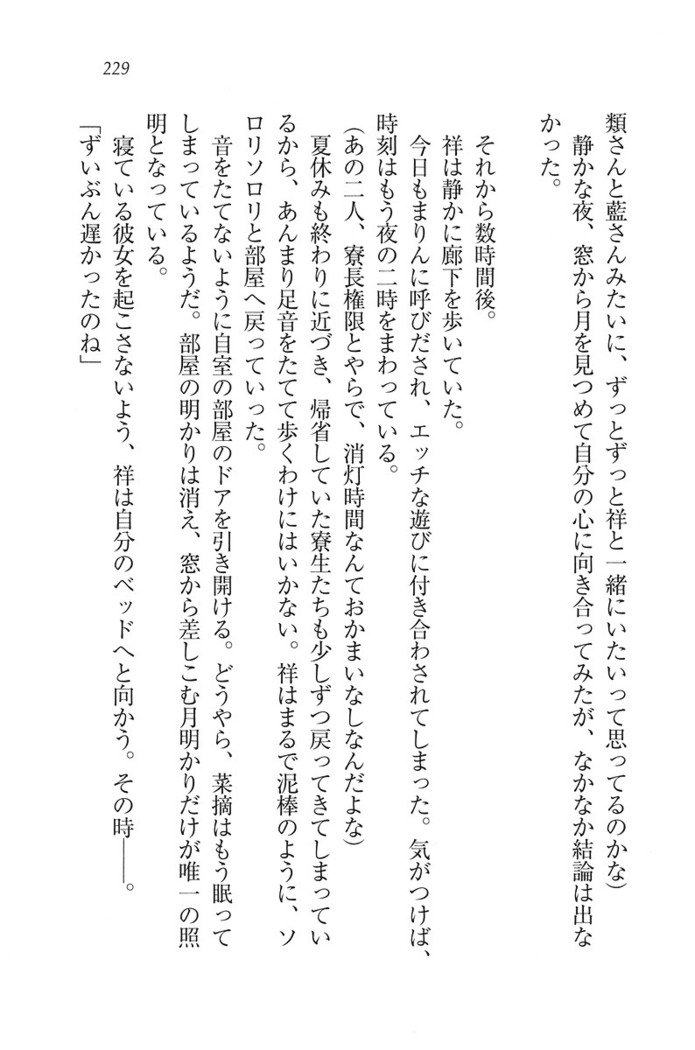 229
類さんと藍さんみたいに、ずっとずっと祥と一緒にいたいって思ってるのかな)
静かな夜、窓から月を見つめて自分の心に向き合ってみたが、なかなか結論は出な
かった。
それから数時間後。
祥は静かに廊下を歩いていた。
今日もまりんに呼びだされ、エッチな遊びに付き合わされてしまった。気がつけば、
時刻はもう夜の二時をまわっている。
(あの二人、寮長権限とやらで、消灯時間なんておかまいなしなんだよな)
夏休みも終わりに近づき、帰省していた寮生たちも少しずつ戻ってきてしまってい
るから、あんまり足音をたてて歩くわけにはいかない。祥はまるで泥棒のように、ソ
ロリソロリと部屋へ戻っていった。
音をたてないように自室の部屋のドアを引き開ける。どうやら、菜摘はもう眠って
しまっているようだ。部屋の明かりは消え、窓から差しこむ月明かりだけが唯一の照
明となっている。
寝ている彼女を起こさないよう、祥は自分のベッドへと向かう。その時――。
「ずいぶん遅かったのね」